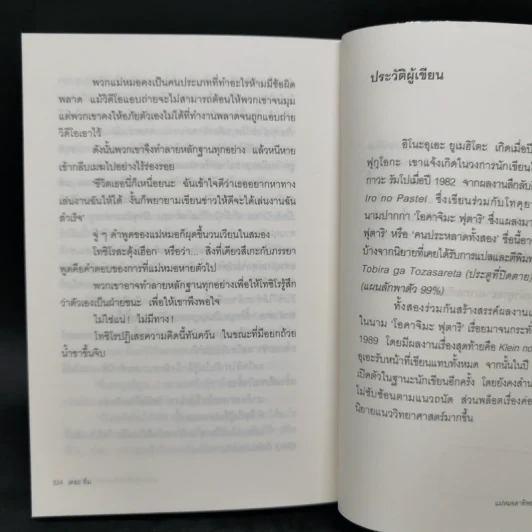 พวกแม่หมอคงเป็นคนประเภทที่ทำอะไรห้ามมีข้อผิด
พลาด แม้วิดีโอแอบถ่ายจะไม่สามารถต้อนให้พวกเขาจนมุม
แต่พวกเขาคงให้อภัยตัวเองไม่ได้ที่ทำงานพลาดจนถูกแอบถ่าย
วิดีโอเอาไว้
ดังนั้นพวกเขาจึงทำลายหลักฐานทุกอย่าง แล้วหนีหาย
เข้ากลีบเมฆไปอย่างไร้ร่องรอย
'ชีวิตเธอนี่ก็เหนื่อยนะ ฉันเข้าใจดีว่าเธออยากหาทาง
เล่นงานฉันให้ได้ งั้นก็พยายามเขียนข่าวให้ดีจะได้เล่นงานฉัน
สำเร็จ'
จู่ ๆ คำพูดของแม่หมอก็ผุดขึ้นวนเวียนในสมอง
โทชิโรสะดุ้งเฮือก หรือว่า... สิ่งที่เคียวสึเกะกับภรรยา
พูดคือคำตอบของการที่แม่หมอหายตัวไป
พวกเขาอาจทำลายหลักฐานทุกอย่างเพื่อให้โทชิโรรู้สึก
ว่าตัวเองเป็นฝ่ายชนะ เพื่อให้เขาพึงพอใจ
ไม่ใช่แน่! ไม่มีทาง!
โทชิโรปฏิเสธความคิดนี้ทันควัน ในขณะที่มือยกถ้วย
น้ำชาขึ้นจิบ
324 เดอะ ทีม
ประวัติผู้เขียน
อิโนะอุเอะ ยูเมฮิโตะ เกิดเมื่อปี
ฟุกุโอกะ เขาแจ้งเกิดในวงการนักเขียนโ
กาวะ รัมโปเมื่อปี 1982 จากผลงานลึกลับ
Iro no Pastel ซึ่งเขียนร่วมกับโทคุย
นามปากกา 'โอคาจิมะ ฟุตาริ' ซึ่งแผลงมา
ฟุตาริ' หรือ 'คนประหลาดทั้งสอง' ชื่อนี้อา
บ้างจากนิยายที่เคยได้รับการแปลและตีพิม
Tobira ga Tozasareta (ประตูที่ปิดตาย)
(แผนลักพาตัว 99%)
ทั้งสองร่วมกันสร้างสรรค์ผลงานเ
ในนาม 'โอคาจิมะ ฟุตาริ' เรื่อยมาจนกระทั่
1989 โดยมีผลงานเรื่องสุดท้ายคือ Klein no
อุเอะรับหน้าที่เขียนแทบทั้งหมด จากนั้นในปี
เปิดตัวในฐานะนักเขียนอีกครั้ง โดยยังคงล้าน
ไม่ซับซ้อนตามแนวถนัด ส่วนพล็อตเรื่องค่อ
นิยายแนววิทยาศาสตร์มากขึ้น